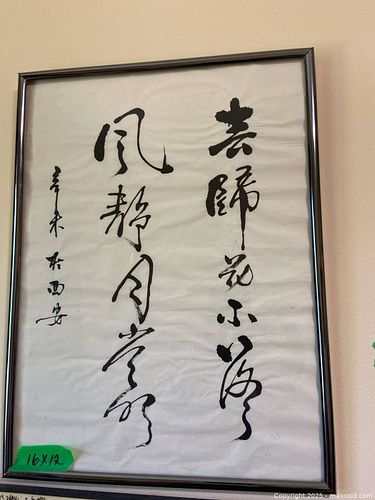 春歸花不落
風靜月常明
辛未於西安
16X12
Copyright 2025 - maxsold.com